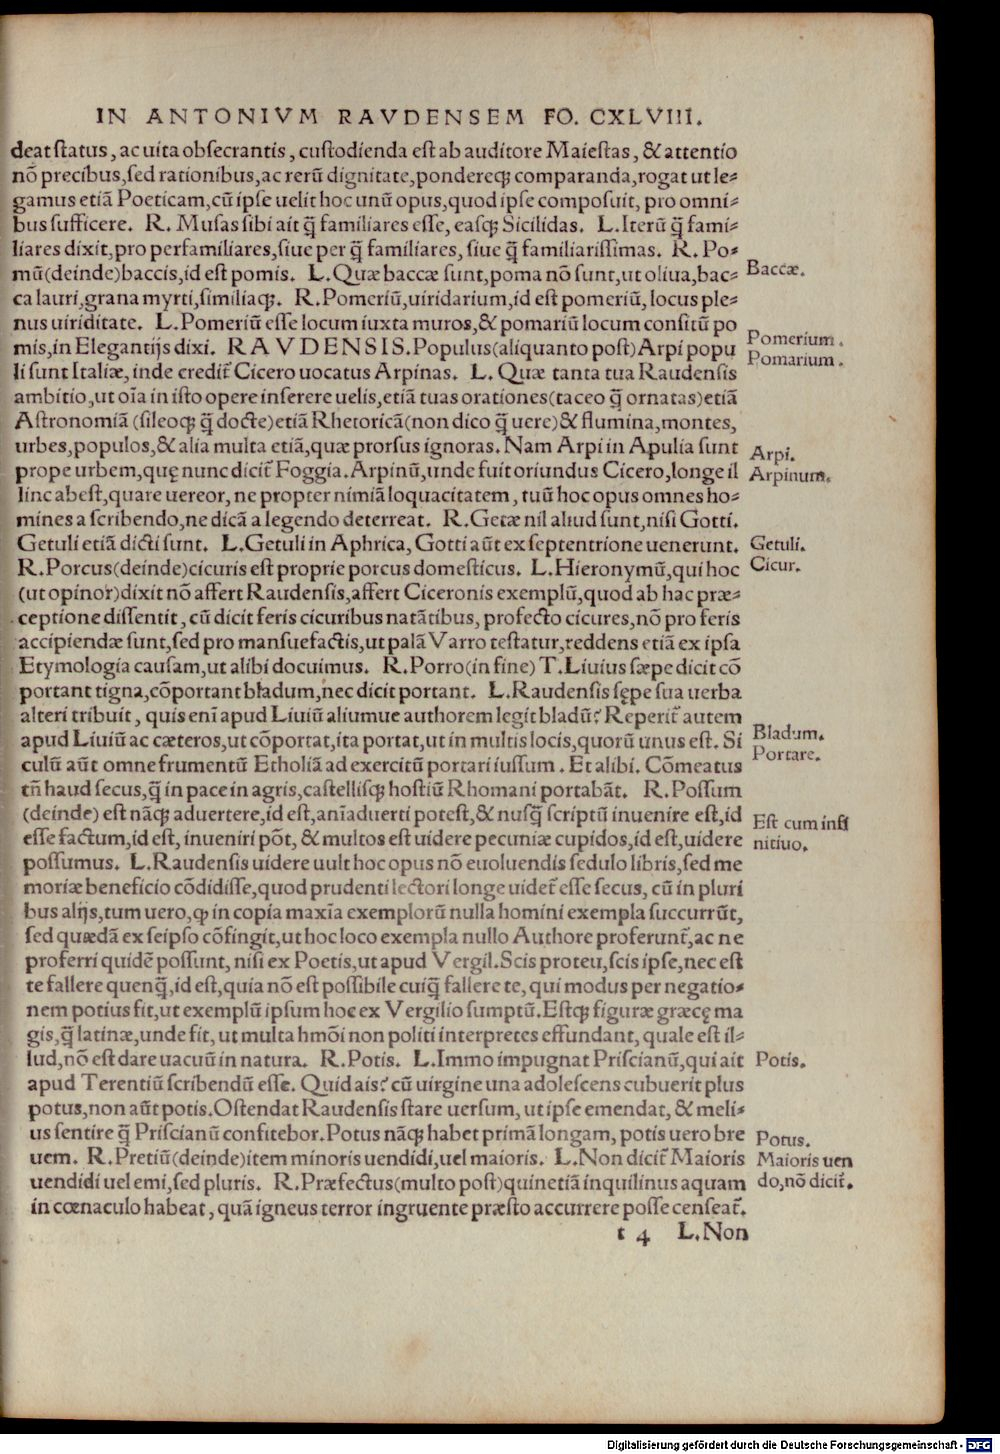 IN ANTONIVM RAVDENSEM FO. CXLVIII.
deat status, ac uita obsecrantis, custodienda est ab auditore Maiestas, & attentio
nõ precibus, sed rationibus, ac rerũ dignitate, ponderęq; comparanda, rogat ut le-
gamus etiã Poeticam, cũ ipse uelit hoc unũ opus, quod ipse composuit, pro omni-
bus sufficere. R. Musas sibi ait q̃ familiares esse, easq; Sicilidas. L. Iterũ q̃ fami-
liares dixit, pro perfamiliares, siue per q̃ familiares, siue q̃ familiarissimas. R. Po-
mũ(deinde)baccis, id est pomis. L. Quæ baccæ sunt, poma nõ sunt, ut oliua, bac-
ca lauri, grana myrti, similiaq;. R. Pomeriũ, uiridarium, id est pomeriũ, locus ple-
nus uiriditate. L. Pomeriũ esse locum iuxta muros, & pomariũ locum consitũ po
mis, in Elegantijs dixi. RAVDENSIS. Populus(aliquanto post)Arpi popu
li sunt Italiæ, inde credit̃ Cicero uocatus Arpinas. L. Quæ tanta tua Raudensis
ambitio, ut oĩa in isto opere inserere uelis, etiã tuas orationes(taceo q̃ ornatas)etiã
Astronomiã (sileoq; q̃ docte)etiã Rhetoricã(non dico q̃ uere)& flumina, montes,
urbes, populos, & alia multa etiã, quæ prorsus ignoras. Nam Arpi in Apulia sunt
prope urbem, quę nunc dicit̃ Foggia. Arpinũ, unde fuit oriundus Cicero, longe il
linc abest, quare uereor, ne propter nimiã loquacitatem, tuũ hoc opus omnes ho-
mines a scribendo, ne dicã a legendo deterreat. R. Getæ nil aliud sunt, nisi Gotti.
Getuli etiã dicti sunt. L. Getuli in Aphrica, Gotti aũt ex septentrione uenerunt.
R. Porcus(deinde)cicuris est proprie porcus domesticus. L. Hieronymũ, qui hoc
(ut opinor)dixit nõ affert Raudensis, affert Ciceronis exemplũ, quod ab hac præ-
ceptione dissentit, cũ dicit feris cicuribus natãtibus, profecto cicures, nõ pro feris
accipiendæ sunt, sed pro mansuefactis, ut palã Varro testatur, reddens etiã ex ipsa
Etymologia causam, ut alibi docuimus. R. Porro(in fine) T. Liuius sæpe dicit cõ
portant tigna, cõportant bladum, nec dicit portant. L. Raudensis sępe sua uerba
alteri tribuit, quis eni apud Liuiũ aliumue authorem legit bladũ? Reperit̃ autem
apud Liuiũ ac cæteros, ut cõportat, ita portat, ut in multis locis, quorũ unus est. Si
culũ aũt omne frumentũ Etholiã ad exercitũ portari iussum. Et alibi. Cõmeatus
tñ haud secus, q̃ in pace in agris, castellisq; hostiũ Rhomani portabãt. R. Possum
(deinde) est nãq; aduertere, id est, aniaduerti potest, & nusq̃ scriptũ inuenire est, id
esse factum, id est, inueniri põt, & multos est uidere pecuniæ cupidos, id est, uidere
possumus. L. Raudensis uidere uult hoc opus nõ euoluendis sedulo libris, sed me
moriæ beneficio cõdidisse, quod prudenti lectori longe uidet̃ esse secus, cũ in pluri
bus alijs, tum uero, ꝙ in copia maxĩa exemplorũ nulla homini exempla succurrũt,
sed quædã ex seipso cõfingit, ut hoc loco exempla nullo Authore proferunt̃, ac ne
proferri quidẽ possunt, nisi ex Poetis, ut apud Vergil. Scis proteu, scis ipse, nec est
te fallere quenq̃, id est, quia nõ est possibile cuiq̃ fallere te, qui modus per negatio-
nem potius fit, ut exemplũ ipsum hoc ex Vergilio sumptũ. Estq; figuræ græcę ma
gis, q̃ latinæ, unde fit, ut multa hmõi non politi interpretes effundant, quale est il-
lud, nõ est dare uacuũ in natura. R. Potis. L. Immo impugnat Priscianũ, qui ait
apud Terentiũ scribendũ esse. Quid ais? cũ uirgine una adolescens cubuerit plus
potus, non aũt potis. Ostendat Raudensis stare uersum, ut ipse emendat, & meli-
us sentire q̃ Priscianũ confitebor. Potus nãq; habet primã longam, potis uero bre
uem. R. Pretiũ(deinde)item minoris uendidi, uel maioris. L. Non dicit̃ Maioris
uendidi uel emi, sed pluris. R. Præfectus(multo post)quinetiã inquilinus aquam
in cœnaculo habeat, quã igneus terror ingruente præsto accurrere posse censeat̃.
t 4 L. Non
Baccæ.
Pomerium.
Pomarium.
Arpi.
Arpinum.
Getuli.
Cicur.
Bladum.
Portare.
Est cum infi
nitiuo.
Potis.
Potus.
Maioris uen
do, nõ dicit̃.
Digitalisierung gefördert durch die Deutsche Forschungsgemeinschaft - DFG